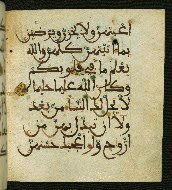 أعينهن ولا يحزن ويرضين
بما اتيتهن كلهن والله
يعلم ما في قلوبكم
وكان الله عليما حليما
لا يحل لك النسا من بعد
ولا أن تبدل بهن من
أزوج ولو أعجبك حسنهن